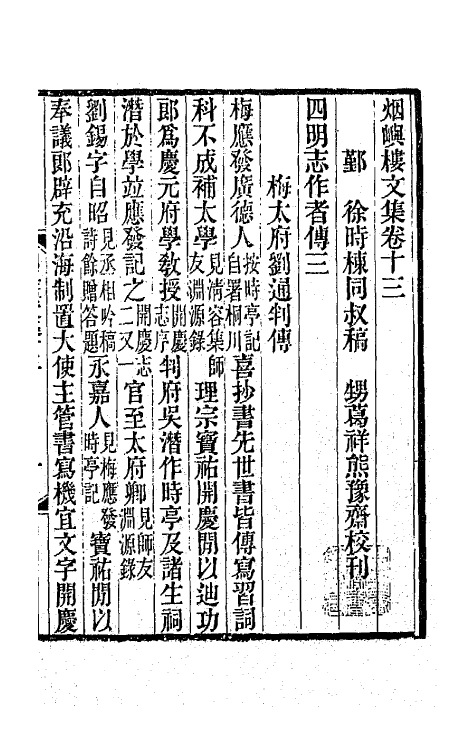 烟嶼樓文集卷十三
鄞　徐時棟同叔稿　甥葛祥熊豫齋校刊
四明志作者傳三
梅太府劉通判傳
梅應發廣德人按時亭記自署桐川喜抄書先世書皆傳寫習詞
科不成補太學見清容集師友淵源錄理宗寶祐開慶閒以迪功
郎爲慶元府學敎授開慶志序判府吳潛作時亭及諸生祠
潛於學竝應發記之開慶志二又一官至太府卿見師友淵源錄
劉錫字自昭見丞相吟稿詩餘贈答題永嘉人見梅應發時亭記寶祐閒以
奉議郎辟充沿海制置大使主管書寫機宜文字開慶